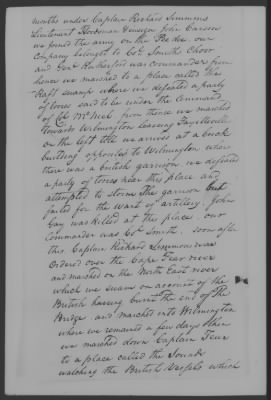 months under Captain Richard Simmons
Lieutenant Hardeman Ensign John Carson
we joined the army on the Pee dee. our
company belonged to Col Smiths Choor
and Genl Rutherford was commander from
hence we marched to a place called the
Raft swamp where we defeated a party
of tories said to be under the command
of Col McNeil from thence we marched
towards Wilmington leaving Fayetteville
on the left till we arrived at a brick
building opposite to Wilmington where
there was a british garrison we defeated
a party of tories near this place and
attempted to storm the garrison but
failed for the want of artillery. John
Gay was killed at this place, our
commander was Col Smith. soon after
this Captain Richard Simmons was
ordered over the Cape Fear river
and marched on the North East river
which we swam on account of the
British having burnt the end of the
Bridge and marched into Wilmington
where we remained a few days then
we marched down Captain Fear
to a place called the Sound
watching the British Vessels which